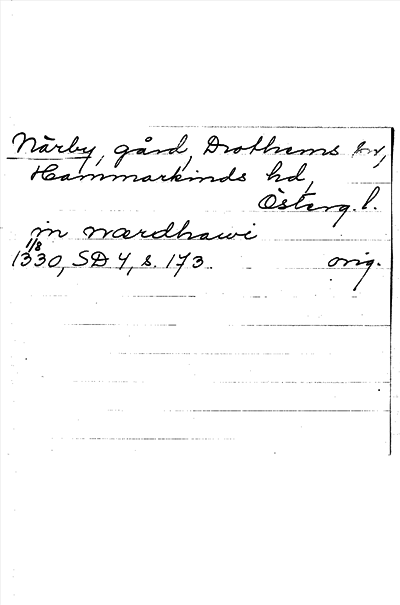 Närby, gård, Drothems sn,
Hammarkinds hd,
Österg. l.
in nærdhawi
1/8
1330, SD 4, s. 173 orig.